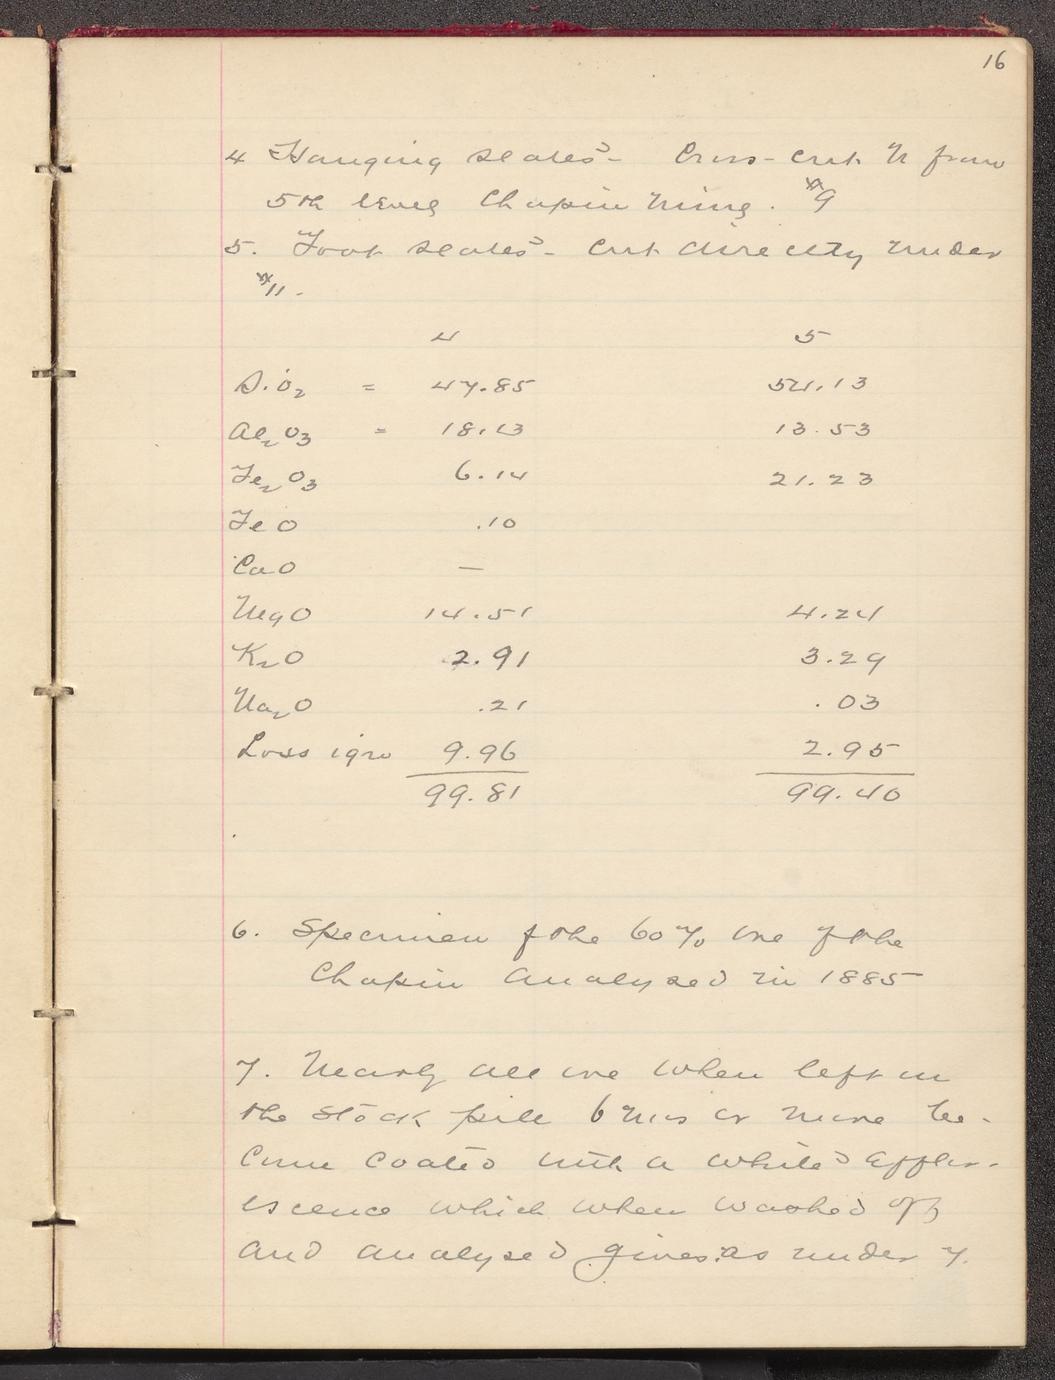 16
4 Hanging slates - Cross-cut N from
5th level Chapin Mine. #9
5. Foot slates - Cut directly under
#11.
4 5
SiO2 = 47.85 54.13
Al2O3 = 18.13 13.53
Fe2O3 6.14 21.23
FeO .10
CaO —
MgO 14.51 4.24
K2O 2.91 3.29
Na2O .21 .03
Loss ign 9.96 2.95
99.81 99.40
6. Specimen of the 60% ore of the
Chapin analysed in 1885
7. Nearly all ore when left in
the stock pile 6 mos or more be-
come coated with a white efflor-
escence which when washed off
and analysed gives: as under 7.